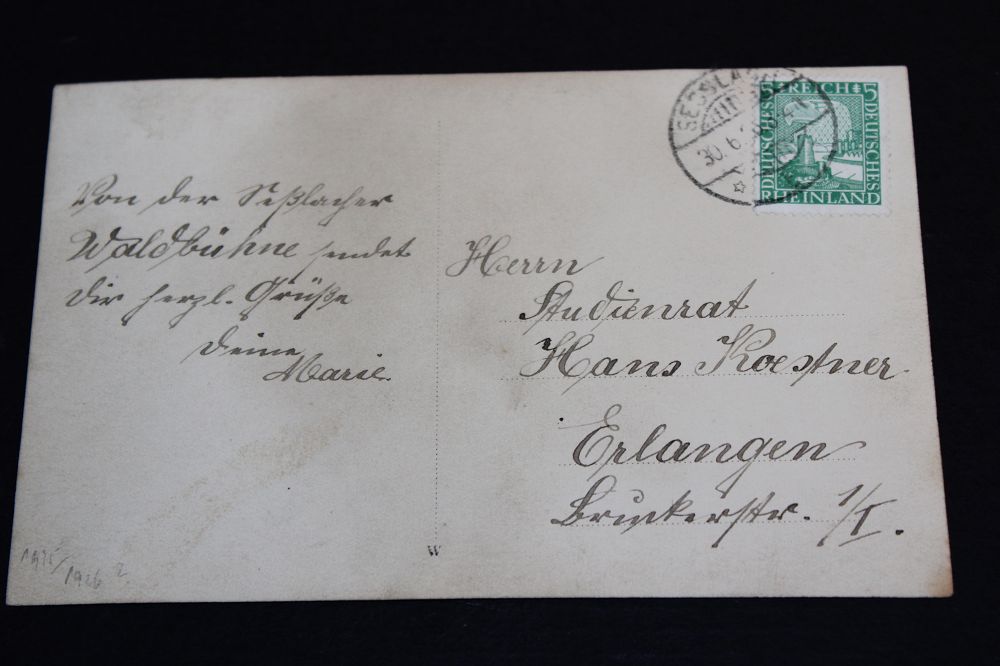 Von der Seßlacher
Waldbühne sendet
Dir herzl. Grüße
Deine
Marie.
1925/
1926 ?
SESSLACH
30.6.
5 REICH 5
DEUTSCHES
DEUTSCHES
RHEINLAND
Herrn
Studienrat
Hans Koestner
Erlangen
Bruckerstr. 1/I.
W